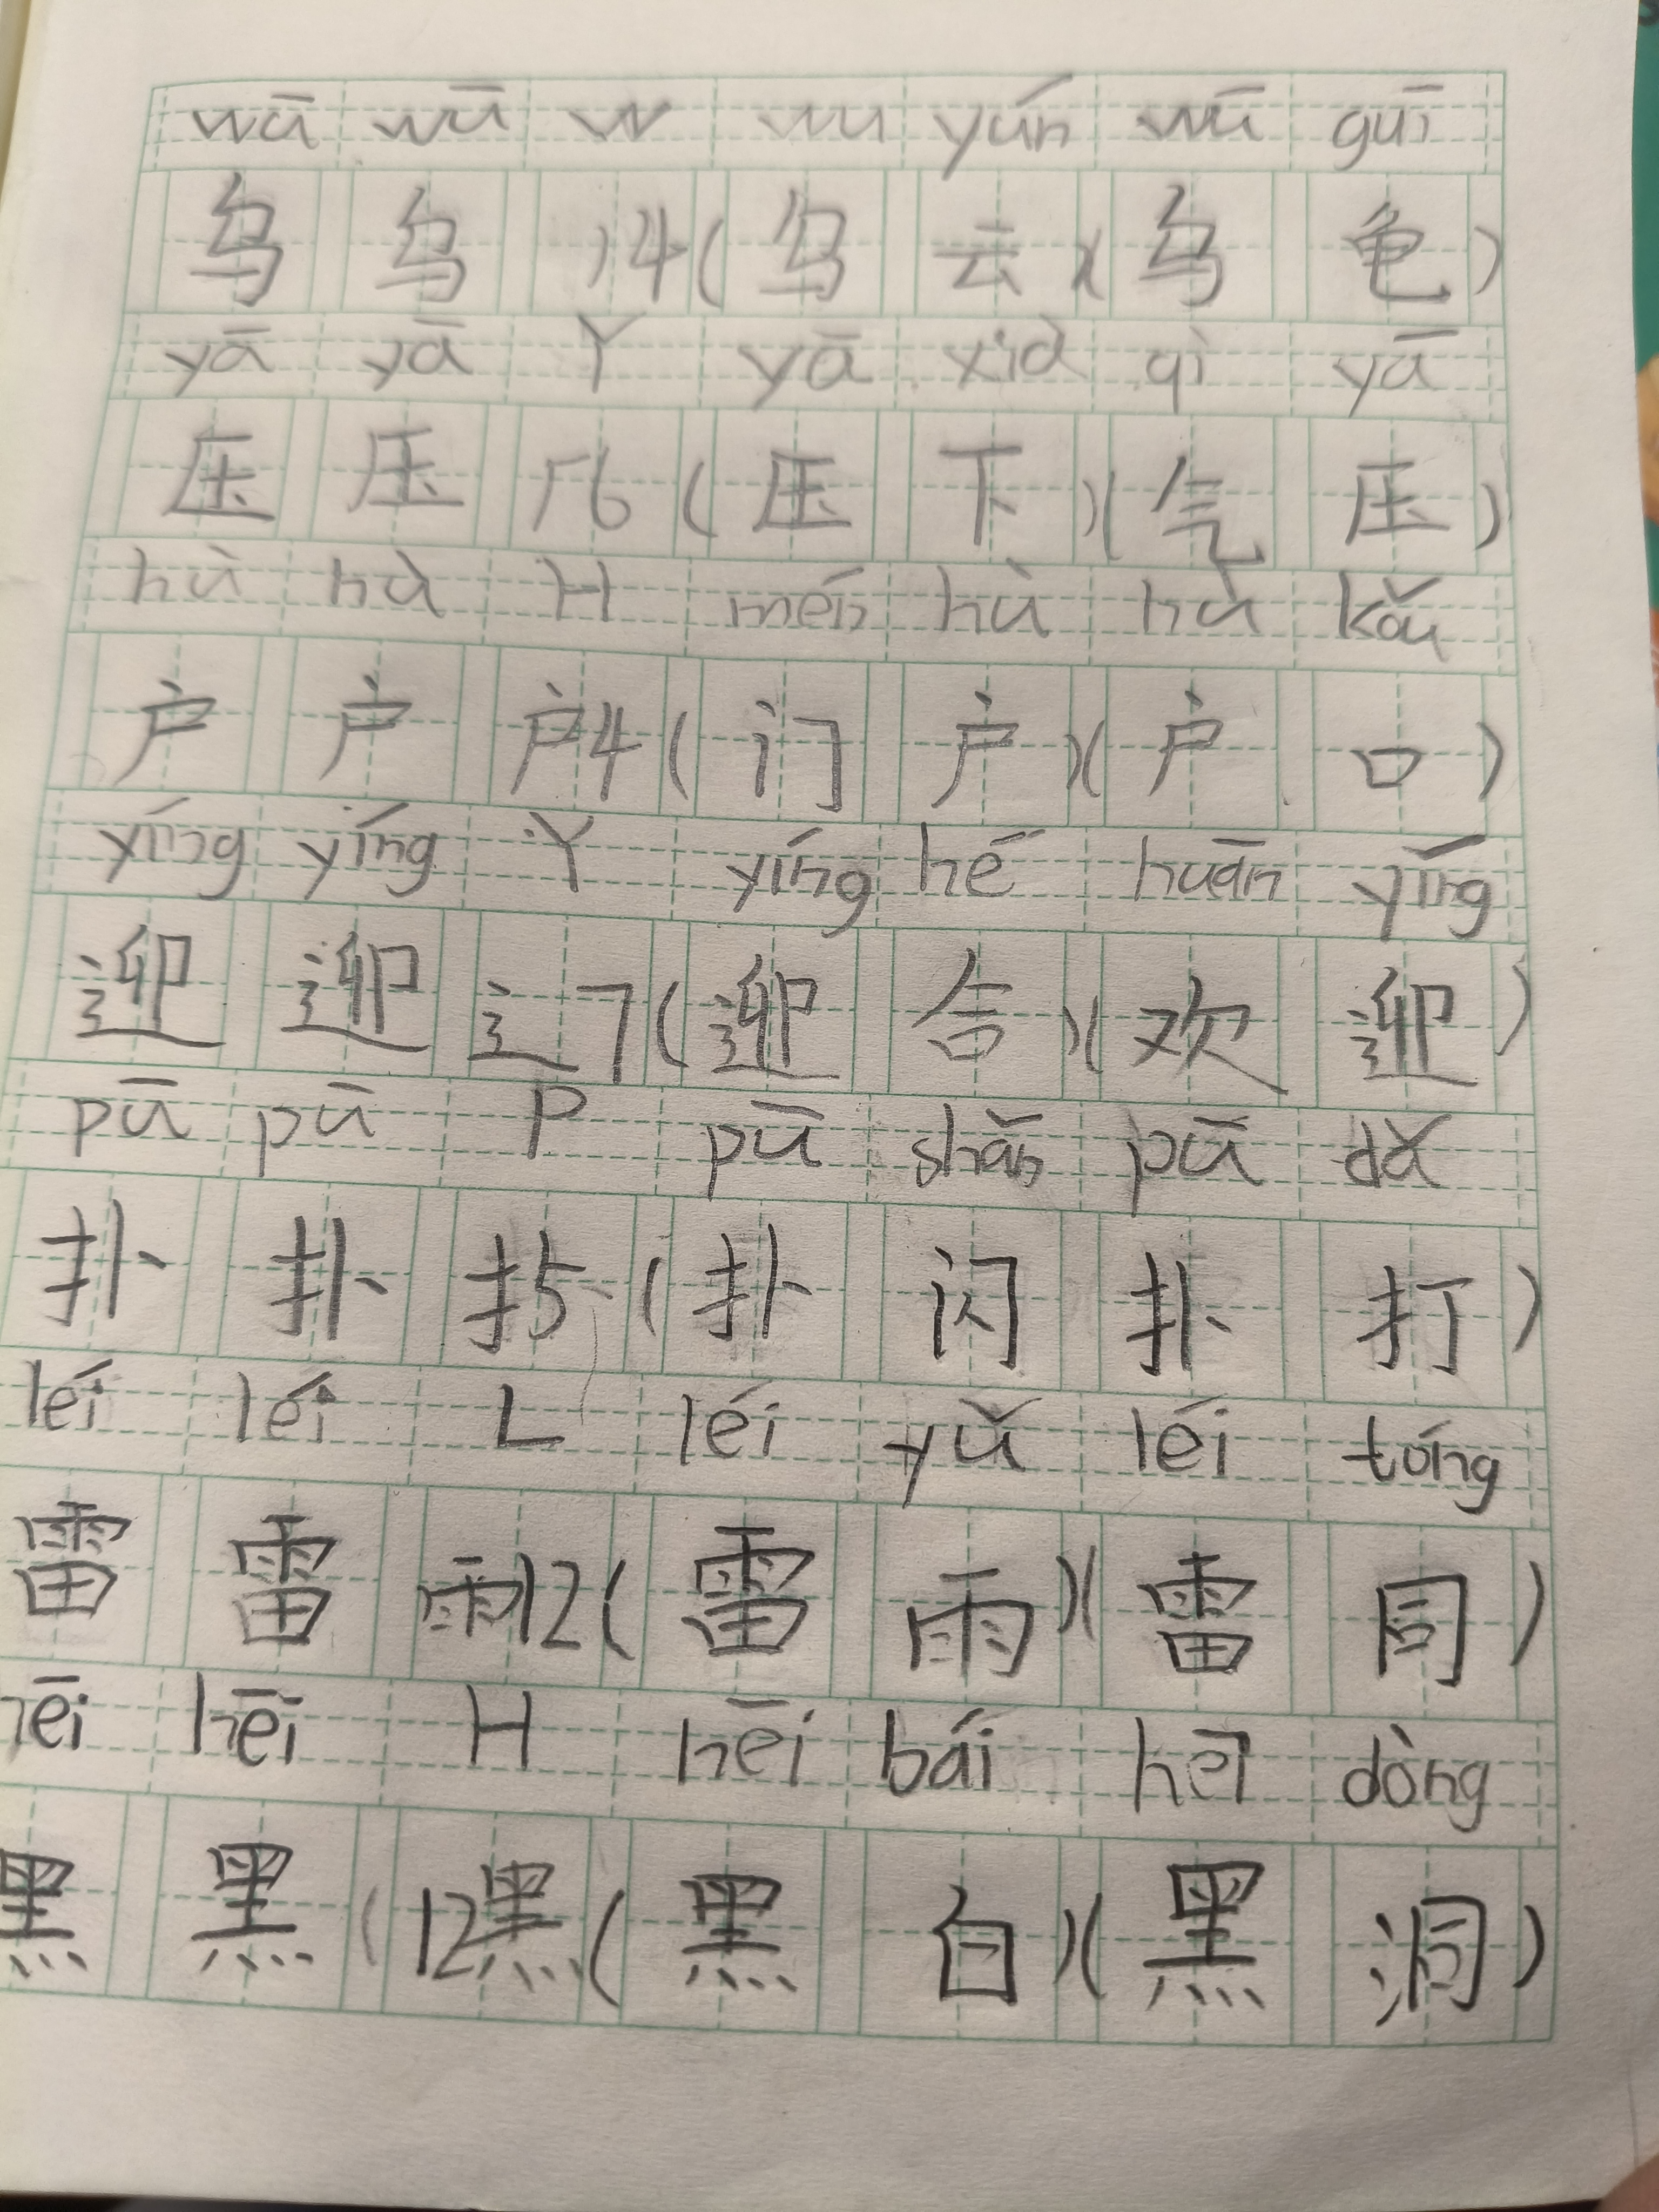 wū wū w wu yún wū guī
乌 乌 丿4(乌 云)(乌 龟)
yā yā Y yā xià qì yā
压 压 厂6(压 下)(气 压)
hù hù H mén hù hù kǒu
户 户 户4(门 户)(户 口)
yíng yíng Y yíng hé huān yíng
迎 迎 辶7(迎 合)(欢 迎)
pū pū P pū shǎn pū dǎ
扑 扑 扌5(扑 闪 扑 打)
léi léi L léi yǔ léi tóng
雷 雷 雨12(雷 雨)(雷 同)
hēi hēi H hēi bái hēi dòng
黑 黑(12黑(黑 白)(黑 洞)